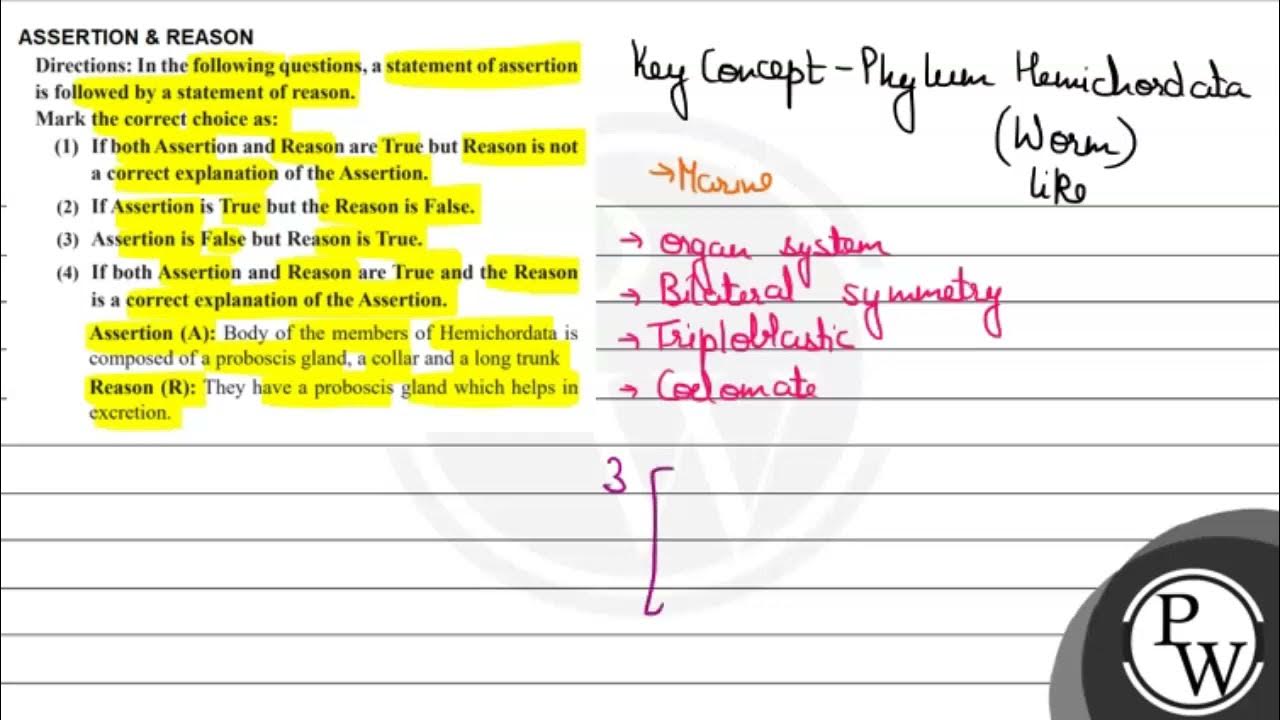 ASSERTION & REASON
Directions: In the following questions, a statement of assertion
is followed by a statement of reason.
Mark the correct choice as:
(1) If both Assertion and Reason are True but Reason is not
a correct explanation of the Assertion.
(2) If Assertion is True but the Reason is False.
(3) Assertion is False but Reason is True.
(4) If both Assertion and Reason are True and the Reason
is a correct explanation of the Assertion.
Assertion (A): Body of the members of Hemichordata is
composed of a proboscis gland, a collar and a long trunk
Reason (R): They have a proboscis gland which helps in
excretion.
Key Concept - Phylum Hemichordata
(Worm)
like
→ Marine
→ organ system
→ Bilateral symmetry
→ Triploblastic
→ Coelomate
3 [
P
W